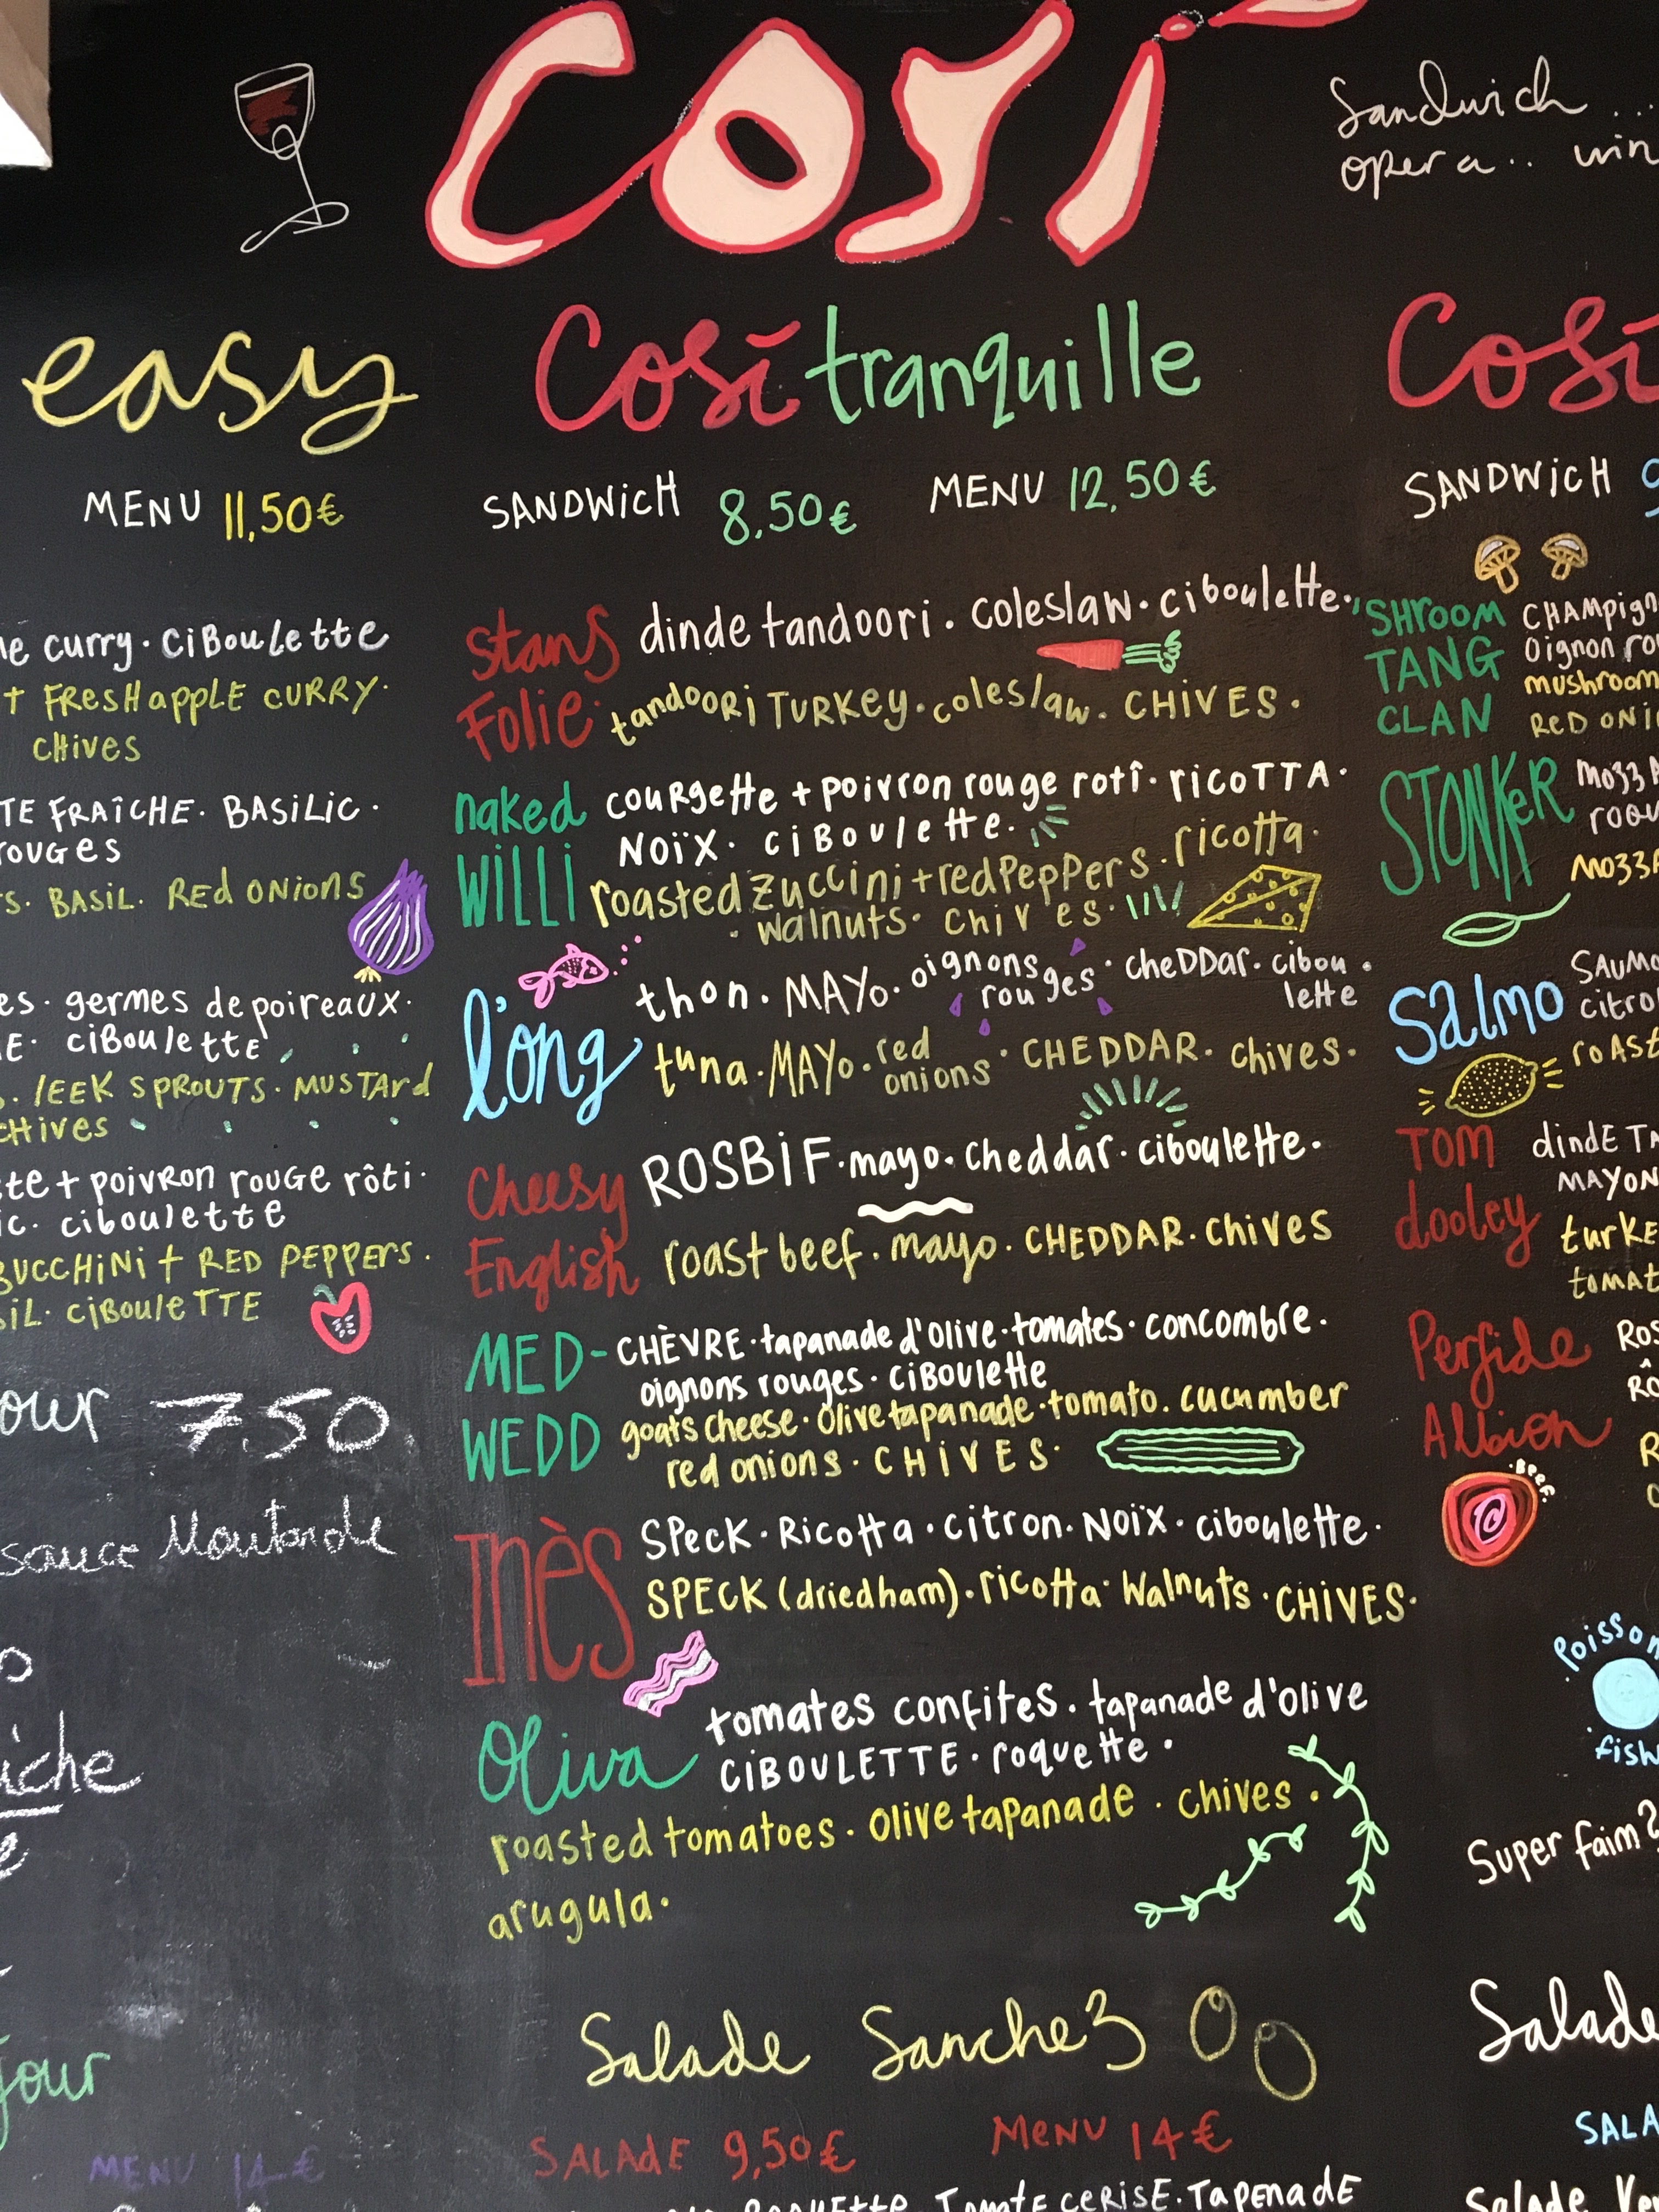 COSÍ
Sandwich ...
opera..
easy
MENU 11,50€
ne curry. CiBouLette
+ FRESH apple CURRY.
CHives
FRAÎCHE. BASiLiC.
rouges
BASiL. RED ONIONS
germes de poireaux.
ciBoulette
LEEK SPROUTS. MUSTARd
CHives
+ poivron rouge rôti.
ciboulette
+ RED PEPPERS.
ciBouleTTE
7.50
sauce Moutarde
MENU 14€
Cosi tranquille
SANDWiCH 8,50€ MENU 12,50€
Stans Folie
dinde tandoori. coleslaw. ciboulette.
tandoori TURKEY. coleslaw. CHIVES.
naked WiLLi
courgette + poivron rouge rotî. ricoTTA.
NOïX. ciBoulette.
roasted zuccini + red peppers. ricotta.
walnuts. chives.
l'ong
thon. MAYo. oignons rouges. cheDDar. ciboulette
tuna. MAYo. red onions. CHEDDAR. chives.
Cheesy English
ROSBiF. mayo. cheddar. ciboulette.
roast beef. mayo. CHEDDAR. chives
MED-WEDD
CHÈVRE. tapanade d'olive. tomates. concombre.
oignons rouges. ciBoulette
goats cheese. Olive tapanade. tomato. cucumber
red onions. CHiVES.
Inès
SPecK. Ricotta. citron. NOïX. ciboulette.
SPECK (dried ham). ricotta. Walnuts. CHiVES.
Oliva
tomates confites. tapanade d'olive
CiBOULETTE. roquette.
roasted tomatoes. Olive tapanade. chives.
arugula.
Salade Sanchez
SALADE 9,50€ MENU 14€
Tomate ceriSE. TaPENADE
Cosi
SANDWiCH
'SHROOM TANG CLAN
Oignon
mushroom
RED
STONKeR
Salmo
TOM dooley
dindE
Perfide Albion
BEEF.
Poisson
fish
Super faim?
Salade
Salade